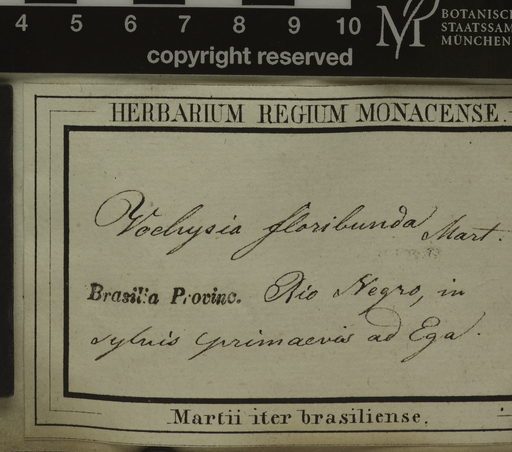 4 5 6 7 8 9 10
copyright reserved
BOTANISC
STAATSSAM
MÜNCHEN
HERBARIUM REGIUM MONACENSE.
Vochysia floribunda Mart.
Brasilia Provinc. Rio Negro, in
sylvis primaevis ad Ega.
Martii iter brasiliense.